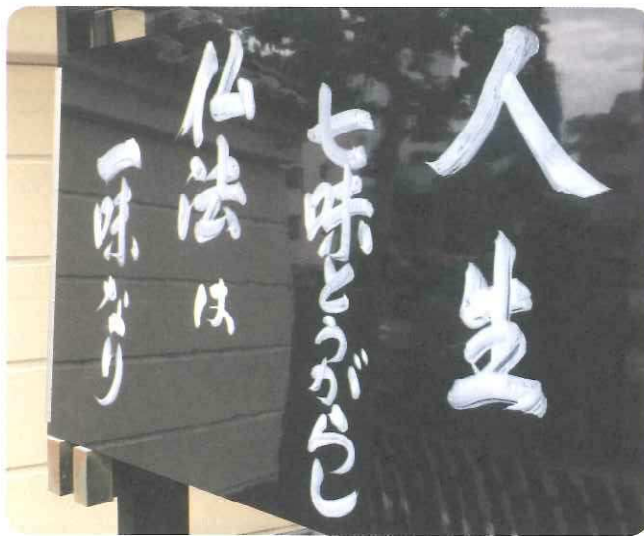 人生
七味とうがらし
仏法は
一味なり